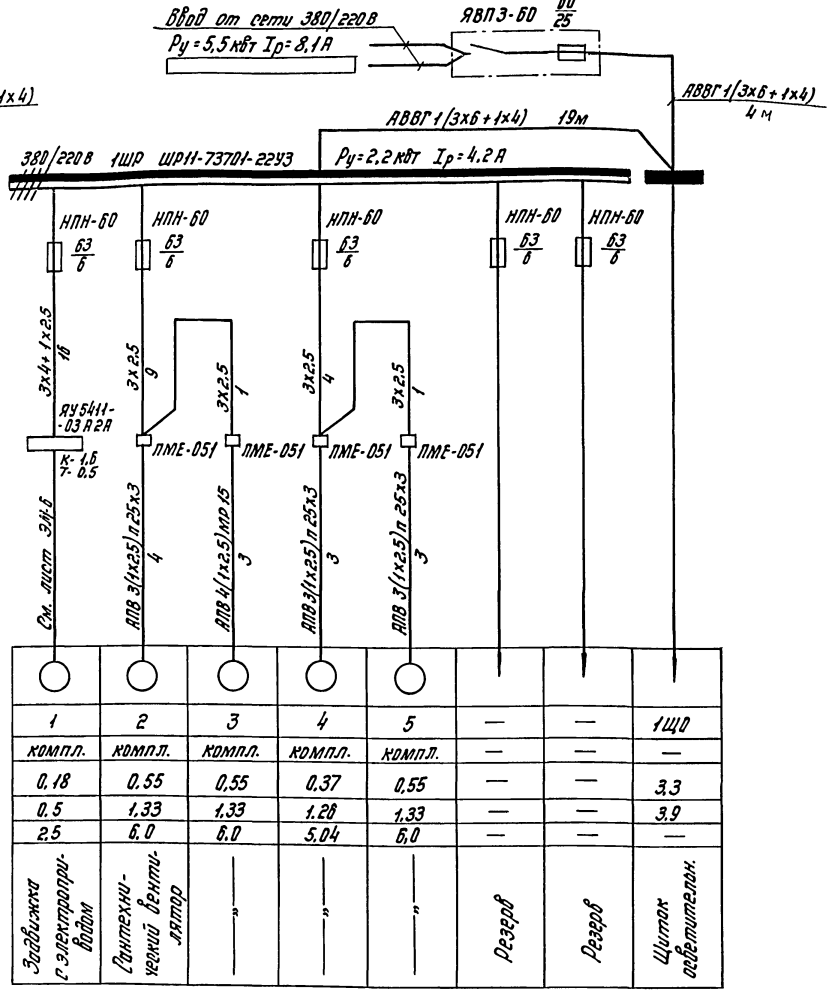 Ввод от сети 380/220В
Ру = 5,5 кВт Iр = 8,1 А
ЯВПЗ-60 60/25
1х4)
АВВГ 1(3х6+1х4)
4 м
АВВГ 1(3х6+1х4) 19м
380/220В 1ШР ШР11-73701-22У3 Ру=2,2 кВт Iр=4,2 А
НПН-60 63/6
НПН-60 63/6
НПН-60 63/6
НПН-60 63/6
НПН-60 63/6
3х4+1х2.5
16
3х2.5
9
3х2.5
1
3х2.5
4
3х2.5
1
ЯУ5411-
-03А2А
К-1,6
Т-0.5
ПМЕ-051
ПМЕ-051
ПМЕ-051
ПМЕ-051
См. лист ЭМ-6
АПВ 3(1х2.5) п 25х3
4
АПВ 4(1х2.5) МР 15
3
АПВ 3(1х2.5) п 25х3
3
АПВ 3(1х2.5) п 25х3
3
1 2 3 4 5 — — 1ЩО
компл. компл. компл. компл. компл. — — —
0,18 0,55 0,55 0,37 0,55 — — 3.3
0.5 1,33 1.33 1.26 1,33 — — 3.9
2,5 6.0 6.0 5.04 6,0 — — —
Задвижка
с электропри-
водом
Сантехни-
ческий венти-
лятор
— „ —
— „ —
— „ —
Резерв
Резерв
Щиток
осветителон.